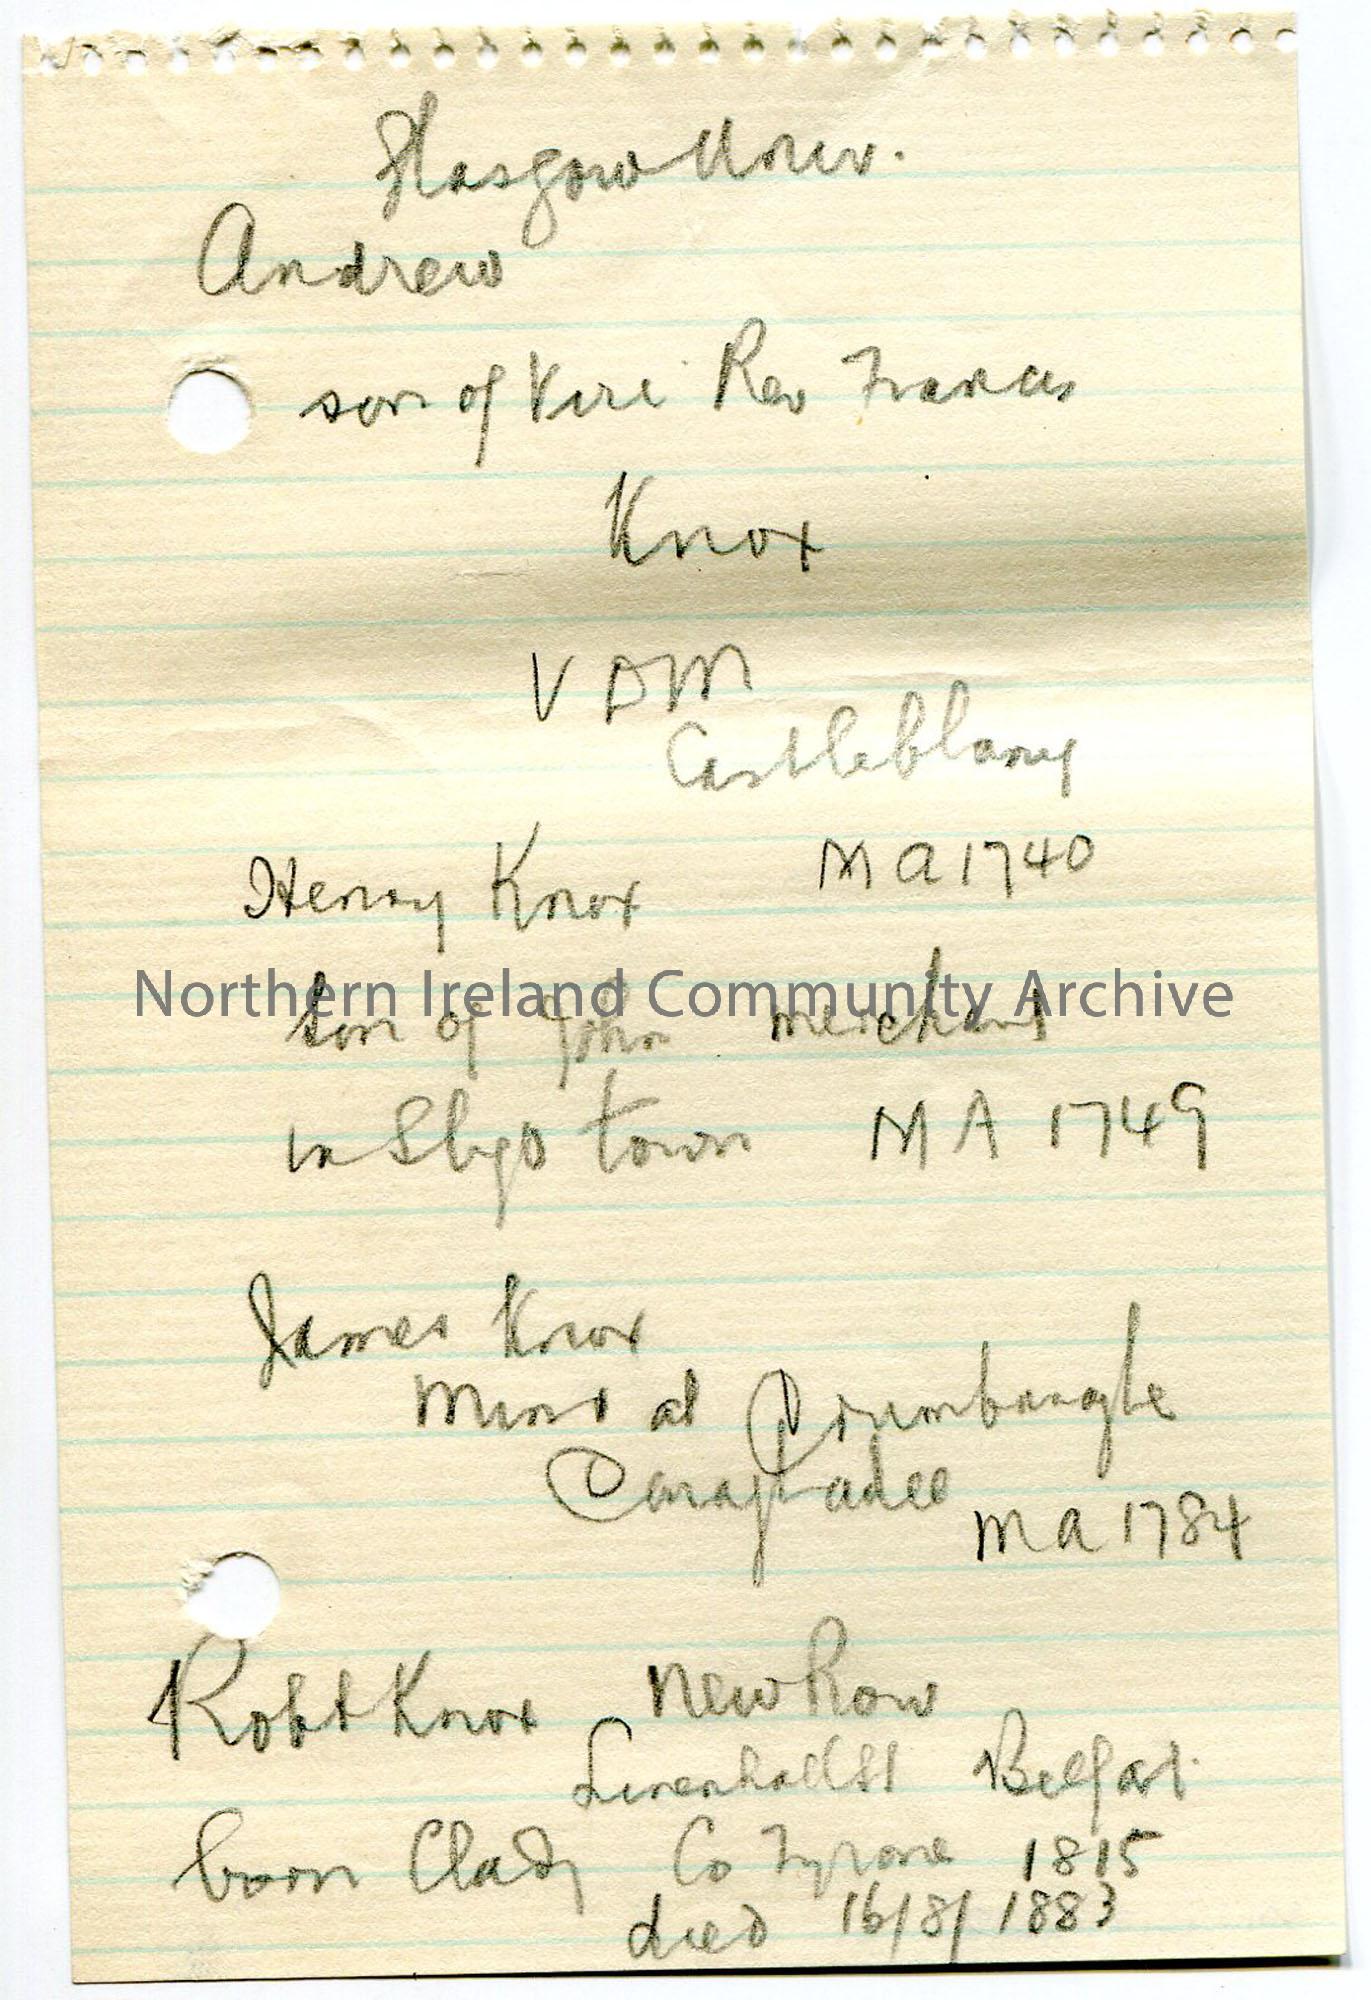 Glasgow Univ.
Andrew
son of Viri Rev Francis
Knox
V D M
Castleblany
Henry Knox M A 1740
Northern Ireland Community Archive
son of John merchant
in Sligo town M A 1749
James Knox
Minr at Drumbanagher
M A 1784
Robt Knox New Row
Linenhall St Belfast
born Clady Co Tyrone 1815
died 16/8/1883